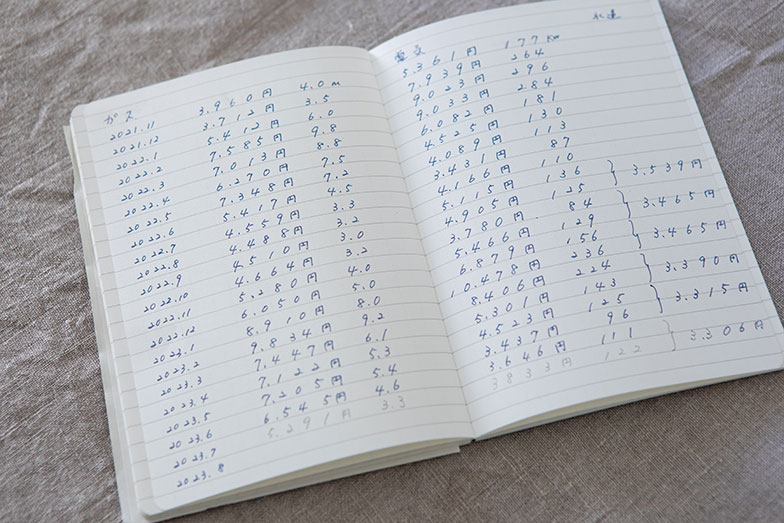 ガス
2021.11 3.960円 4.0m
2021.12 3.712円 3.5
2022.1 5.412円 6.0
2022.2 7.585円 9.8
2022.3 7.013円 8.8
2022.4 6.270円 7.5
2022.5 7.348円 7.2
2022.6 5.417円 4.5
2022.7 4.559円 3.3
2022.8 4.488円 3.2
2022.9 4.510円 3.0
2022.10 4.664円 3.2
2022.11 5.280円 4.0
2022.12 6.050円 5.0
2023.1 8.910円 8.0
2023.2 9.834円 9.2
2023.3 7.447円 6.1
2023.4 7.122円 5.3
2023.5 7.205円 5.4
2023.6 6.545円 4.6
2023.7 5.291円 3.3
2023.8
電気 水道
5.361円 177km
7.939円 264
9.023円 296
9.033円 284
6.082円 181
4.525円 130
4.089円 113
3.431円 87
4.166円 110 3.539円
5.115円 136
4.905円 125 3.465円
3.780円 84
5.466円 129 3.465円
6.879円 156
10.478円 236 3.390円
8.406円 224
5.301円 143 3.315円
4.523円 125
3.437円 96 3.306円
3.646円 111
3833円 122